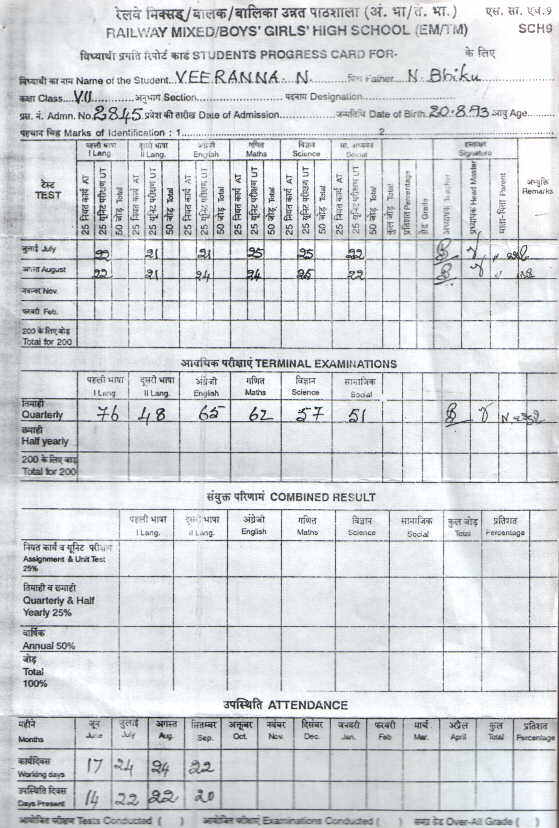 रेलवे मिक्सड/बालक/बालिका उन्नत पाठशाला (अं. भा/त. भा.) एस. सी. एच.९
RAILWAY MIXED/BOYS' GIRLS' HIGH SCHOOL (EM/TM) SCH9
विद्यार्थी प्रगति रिपोर्ट कार्ड STUDENTS PROGRESS CARD FOR- के लिए
विद्यार्थी का नाम Name of the Student. VEERANNA. N. पिता Father N. Bhiku
कक्षा Class VII अनुभाग Section पदनाम Designation
प्र. नं. Admn. No. 2845 प्रवेश की तारीख Date of Admission जन्मतिथि Date of Birth 20.8.93 आयु Age
पहचान चिह्न Marks of Identification : 1 2
पहली भाषा दूसरी भाषा अंग्रेजी गणित विज्ञान हस्ताक्षर
I Lang. II Lang. English Maths Science Social Signature
टेस्ट TEST 25 नियत कार्य AT 25 यूनिट परीक्षण UT 50 जोड़ Total 25 नियत कार्य AT 25 यूनिट परीक्षण UT 50 जोड़ Total 25 नियत कार्य AT 25 यूनिट परीक्षण UT 50 जोड़ Total 25 नियत कार्य AT 25 यूनिट परीक्षण UT 50 जोड़ Total 25 नियत कार्य AT 25 यूनिट परीक्षण UT 50 जोड़ Total 25 नियत कार्य AT 25 यूनिट परीक्षण UT 50 जोड़ Total कुल जोड़ Total प्रतिशत Percentage ग्रेड Grade अध्यापक Teacher प्रधानाध्यापक Head Master माता-पिता Parent अभ्युक्ति Remarks
जुलाई July 22 21 21 25 25 22
अगस्त August 22 21 24 24 25 22
नवम्बर Nov.
फरवरी Feb.
200 के लिए जोड़
Total for 200
आवधिक परीक्षाएं TERMINAL EXAMINATIONS
पहली भाषा दूसरी भाषा अंग्रेजी गणित विज्ञान सामाजिक
I Lang. II Lang. English Maths Science Social
तिमाही
Quarterly 76 48 65 62 57 51
छमाही
Half yearly
200 के लिए जोड़
Total for 200
संयुक्त परिणाम COMBINED RESULT
पहली भाषा दूसरी भाषा अंग्रेजी गणित विज्ञान सामाजिक कुल जोड़ प्रतिशत
I Lang. II Lang. English Maths Science Social Total Percentage
नियत कार्य व यूनिट परीक्षण
Assignment & Unit Test
25%
तिमाही व छमाही
Quarterly & Half
Yearly 25%
वार्षिक
Annual 50%
जोड़
Total
100%
उपस्थिति ATTENDANCE
महीने जून जुलाई अगस्त सितम्बर अक्तूबर नवंबर दिसंबर जनवरी फरवरी मार्च अप्रैल कुल प्रतिशत
Months June July Aug. Sep. Oct. Nov. Dec. Jan. Feb Mar. April Total Percentage
कार्यदिवस
Working days 17 24 24 22
उपस्थिति दिवस
Days Present 14 22 22 20
आयोजित परीक्षण Tests Conducted ( ) आयोजित परीक्षाएं Examinations Conducted ( ) समग्र ग्रेड Over-All Grade ( )